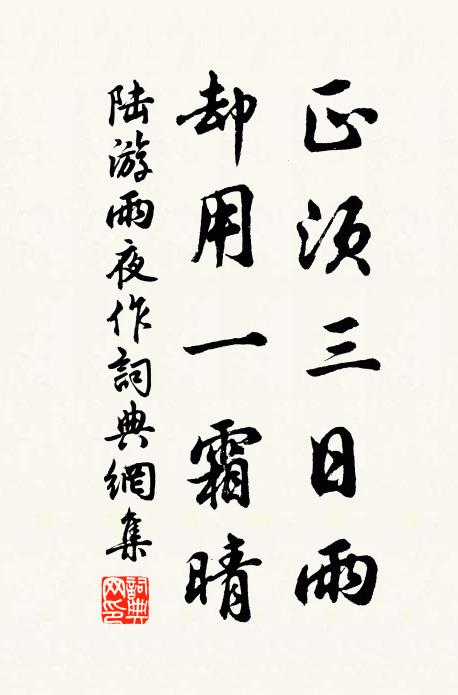 正須三日雨
却用一霜晴
陸游雨夜作詞典網集
詞典網印